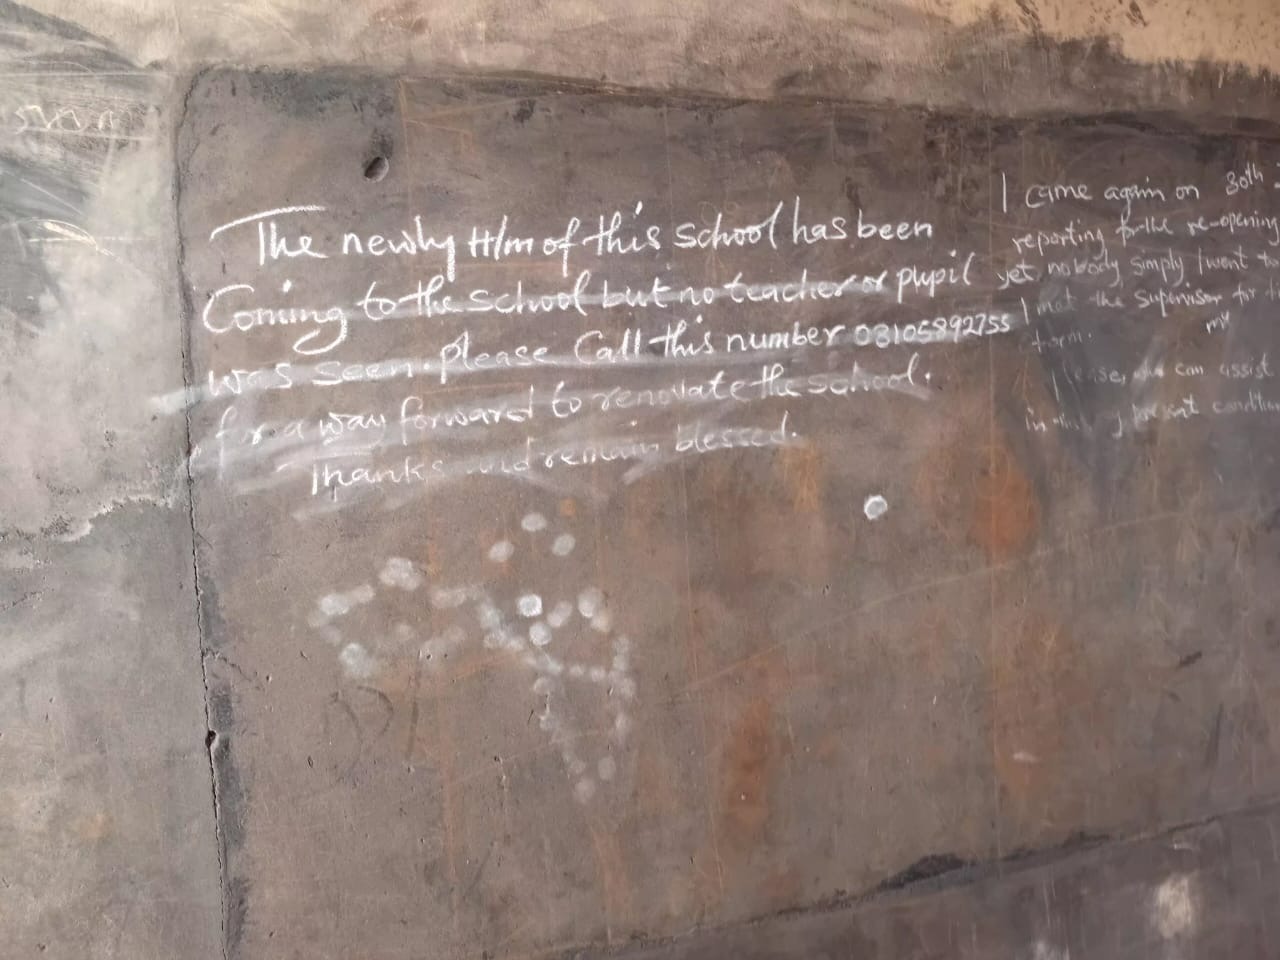 The newly H/m of this school has been
Coming to the school but no teacher or pupil
was seen. please Call this number 08105892755
for a way forward to renovate the school.
Thanks and remain blessed.
I came again on 30th
reporting for the re-opening
yet, nobody, simply I went to
I met the Supervisor for
my
form.
can assist
present condition